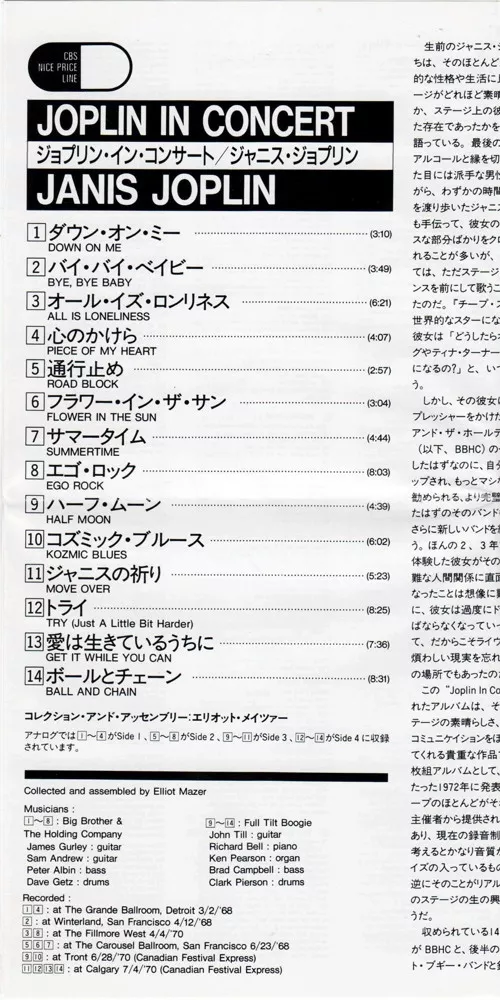 CBS
NICE PRICE
LINE
JOPLIN IN CONCERT
ジョプリン・イン・コンサート／ジャニス・ジョプリン
JANIS JOPLIN
1 ダウン・オン・ミー (3:10)
DOWN ON ME
2 バイ・バイ・ベイビー (3:49)
BYE, BYE BABY
3 オール・イズ・ロンリネス (6:21)
ALL IS LONELINESS
4 心のかけら (4:07)
PIECE OF MY HEART
5 通行止め (2:57)
ROAD BLOCK
6 フラワー・イン・ザ・サン (3:04)
FLOWER IN THE SUN
7 サマータイム (4:44)
SUMMERTIME
8 エゴ・ロック (8:03)
EGO ROCK
9 ハーフ・ムーン (4:39)
HALF MOON
10 コズミック・ブルース (6:02)
KOZMIC BLUES
11 ジャニスの祈り (5:23)
MOVE OVER
12 トライ (8:25)
TRY (Just A Little Bit Harder)
13 愛は生きているうちに (7:36)
GET IT WHILE YOU CAN
14 ボールとチェーン (8:31)
BALL AND CHAIN
コレクション・アンド・アッセンブリー：エリオット・メイツァー
アナログでは1〜4がSide 1、5〜8がSide 2、9〜11がSide 3、12〜14がSide 4に収録
されています。
Collected and assembled by Elliot Mazer
Musicians :
1〜8 : Big Brother &
The Holding Company
James Gurley : guitar
Sam Andrew : guitar
Peter Albin : bass
Dave Getz : drums
9〜14 : Full Tilt Boogie
John Till : guitar
Richard Bell : piano
Ken Pearson : organ
Brad Campbell : bass
Clark Pierson : drums
Recorded :
1 4 : at The Grande Ballroom, Detroit 3/2/'68
2 : at Winterland, San Francisco 4/12/'68
3 8 : at The Fillmore West 4/4/'70
5 6 7 : at The Carousel Ballroom, San Francisco 6/23/'68
9 10 : at Tront 6/28/'70 (Canadian Festival Express)
11 12 13 14 : at Calgary 7/4/'70 (Canadian Festival Express)
生前のジャニス・
ちは、そのほとんど
的な性格や生活に
ージがどれほど素晴
か、ステージ上の彼
た存在であったかを
語っている。最後の
アルコールと縁を切
た目には派手な男性
がら、わずかの時間
を渡り歩いたジャニス
も手伝って、彼女の
スな部分ばかりをク
れることが多いが、
ては、ただステージ
ンスを前にして歌うこ
たのだ。『チープ・ス
世界的なスターにな
彼女は「どうしたら
グやティナ・ターナー
になるの?」と、いつ
う。
しかし、その彼女
プレッシャーをかけた
アンド・ザ・ホールデ
（以下、BBHC）の
したはずなのに、自分
ップされ、もっとマシな
勧められる、より完璧
たはずのそのバンド
さらに新しいバンドを
う。ほんの2、3年
体験した彼女がその
難な人間関係に直面
なったことは想像に難
に、彼女は過度にド
ばならなくなってい
て、だからこそライヴ
煩わしい現実を忘れ
の場所でもあったの
この“Joplin In Co
れたアルバムは、そ
テージの素晴らしさ、
コミュニケイションをほ
てくれる貴重な作品
枚組アルバムとして、
たった1972年に発表
ープのほとんどがそ
主催者から提供され
あり、現在の録音制
考えるとかなり音質が
イズの入っているもの
逆にそのことがリアル
のステージの生の興
うだ。
収められている14
が BBHCと、後半の
ト・ブギー・バンドと